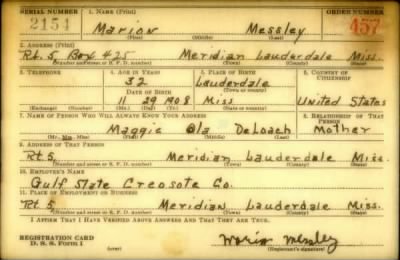 SERIAL NUMBER 1. NAME (Print) ORDER NUMBER
2154 Marion Messley 457
(First) (Middle) (Last)
2. ADDRESS (Print)
Rt. 5, Box 425 Meridian Lauderdale Miss.
(Number and street or R. F. D. number) (Town) (County) (State)
3. TELEPHONE 4. AGE IN YEARS 5. PLACE OF BIRTH 6. COUNTRY OF CITIZENSHIP
32 Lauderdale
DATE OF BIRTH (Town or county)
11 29 1908 Miss United States
(Exchange) (Number) (Mo.) (Day) (Yr.) (State or country)
7. NAME OF PERSON WHO WILL ALWAYS KNOW YOUR ADDRESS 8. RELATIONSHIP OF THAT PERSON
Maggie Ola DeLoach Mother
(Mr., Mrs., Miss) (First) (Middle) (Last)
9. ADDRESS OF THAT PERSON
Rt. 5, Meridian Lauderdale Miss.
(Number and street or R. F. D. number) (Town) (County) (State)
10. EMPLOYER'S NAME
Gulf State Creosote Co.
11. PLACE OF EMPLOYMENT OR BUSINESS
Rt. 5, Meridian Lauderdale Miss.
(Number and street or R. F. D. number) (Town) (County) (State)
I AFFIRM THAT I HAVE VERIFIED ABOVE ANSWERS AND THAT THEY ARE TRUE.
REGISTRATION CARD
D. S. S. Form 1 (over) Marion Messley
(Registrant's signature)